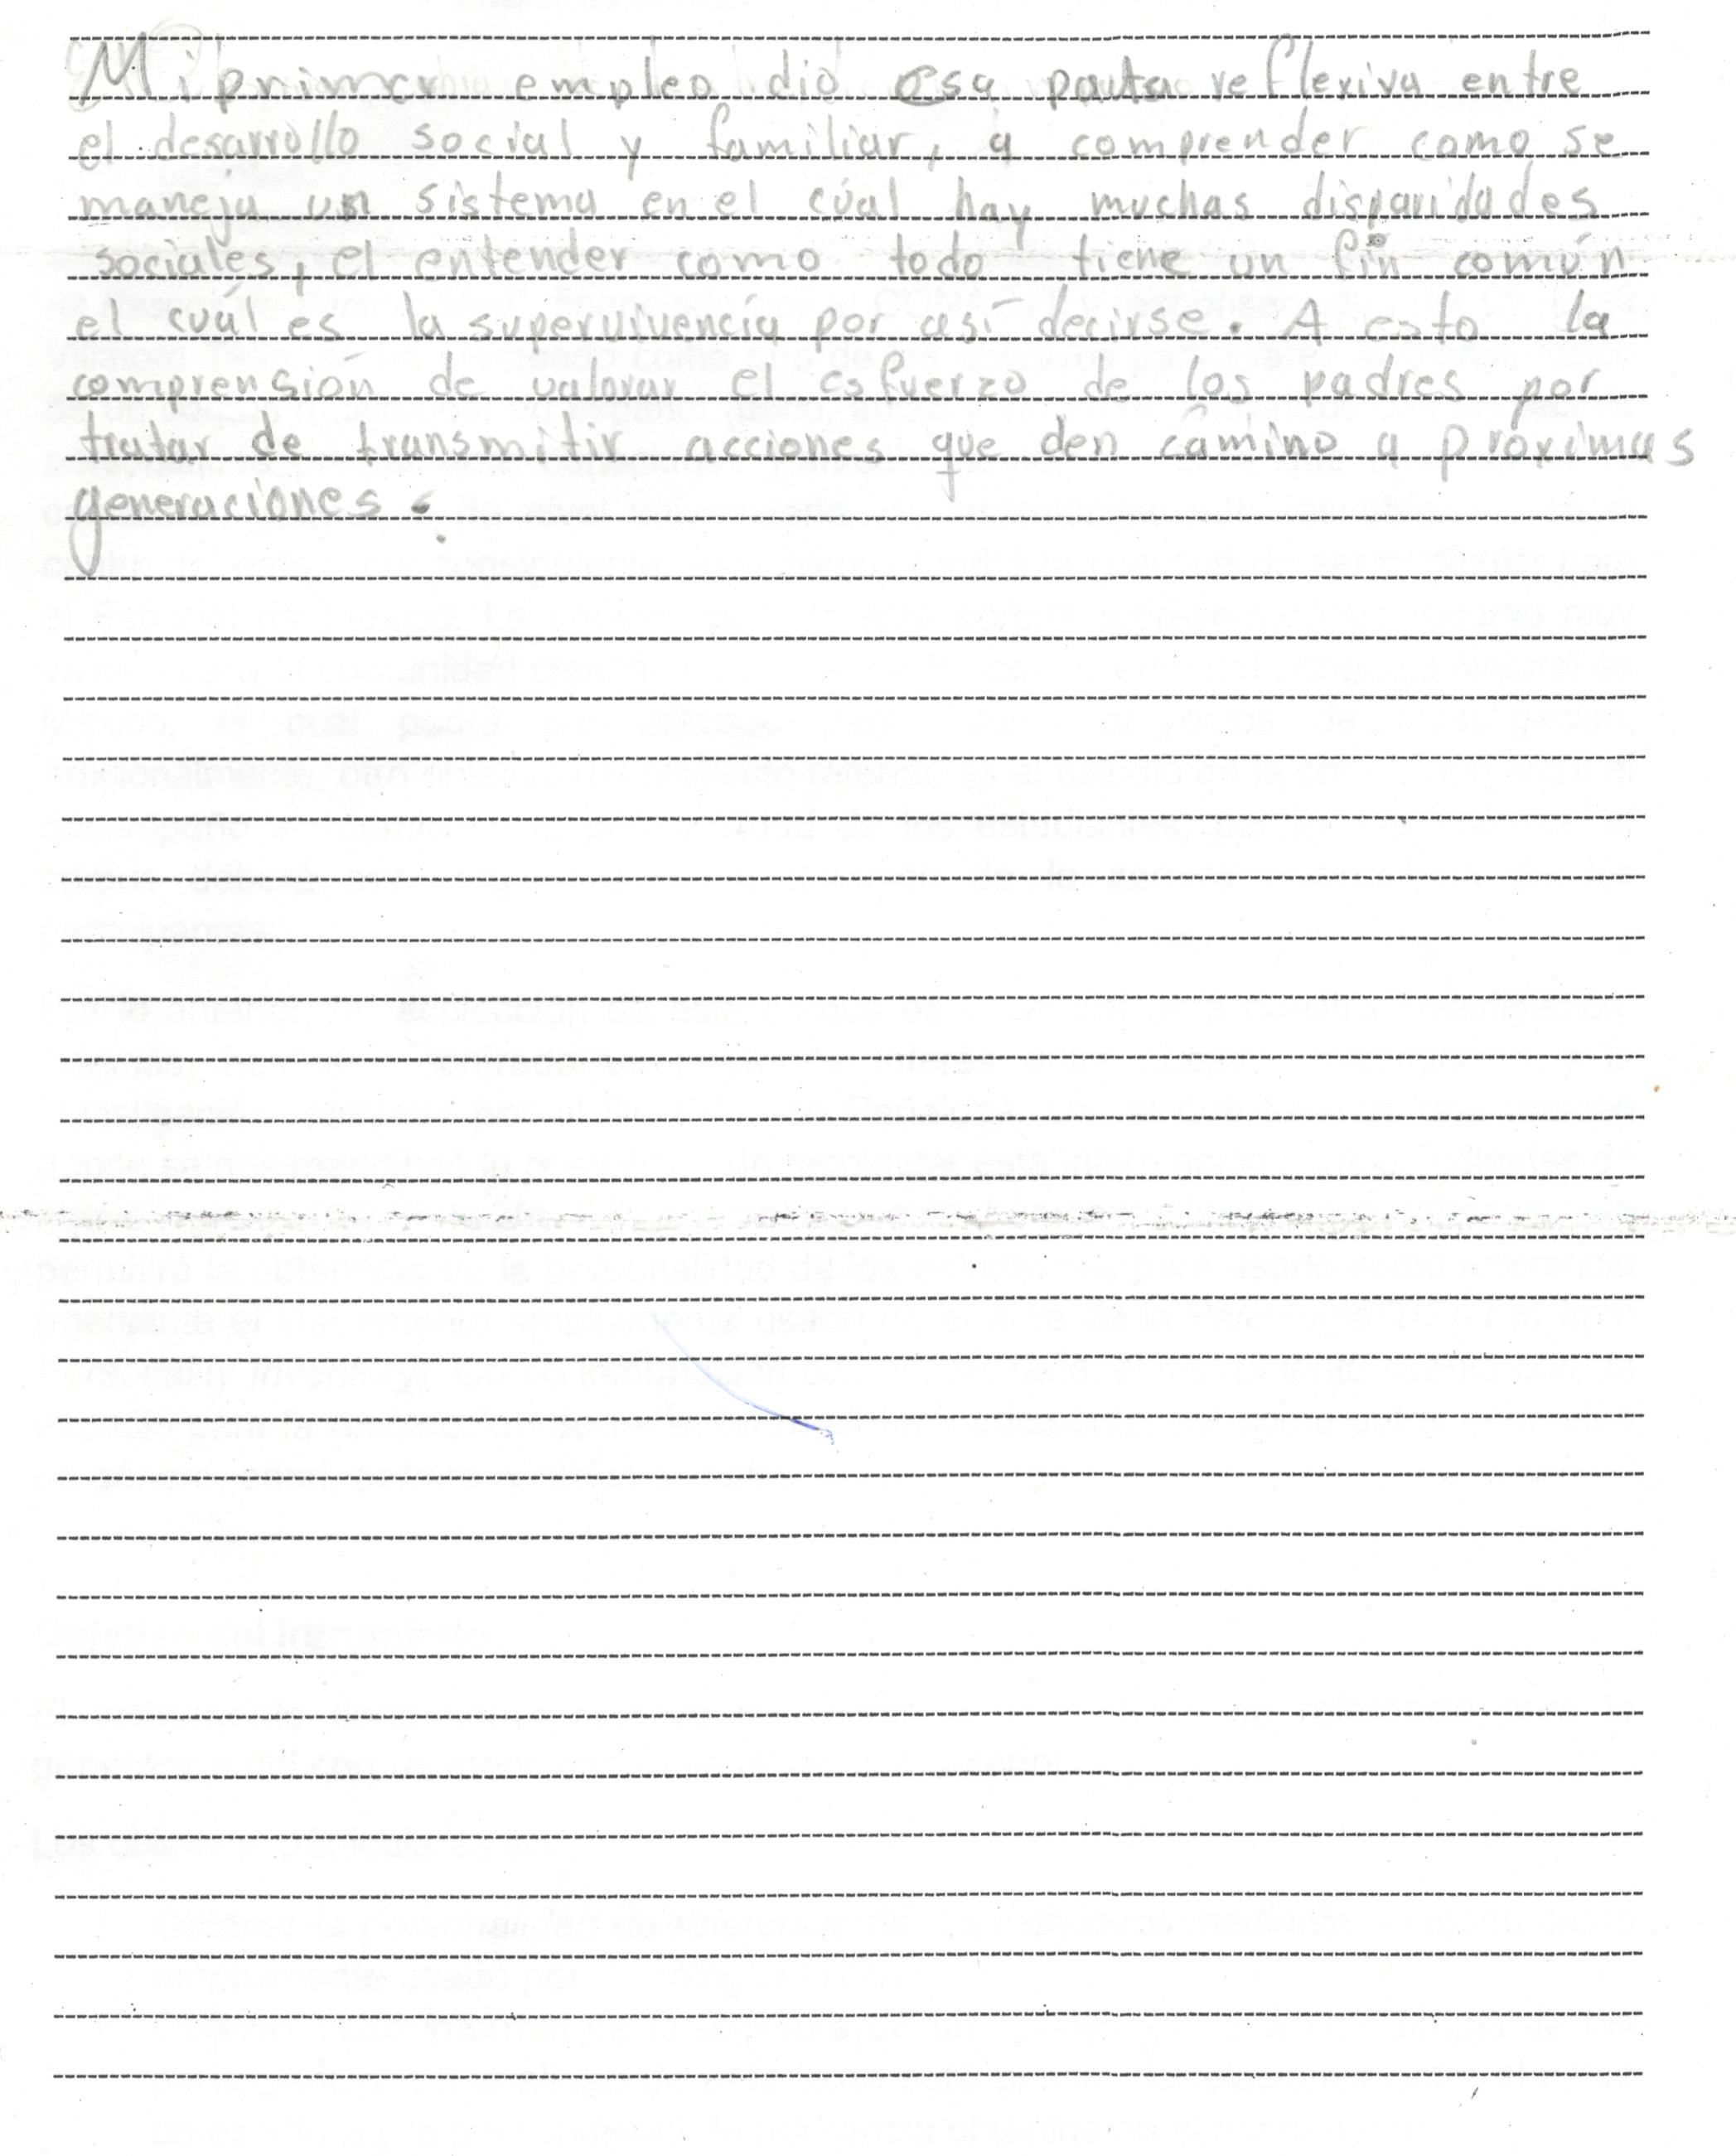 Mi primer empleo dio esa pauta reflexiva entre
el desarrollo social y familiar, a comprender como se
maneja un sistema en el cúal hay muchas disparidades
sociales, el entender como todo tiene un fin común
el cuál es la supervivencia por así decirse. A esto la
comprensión de valorar el esfuerzo de los padres por
tratar de transmitir acciones que den camino a próximas
generaciones.